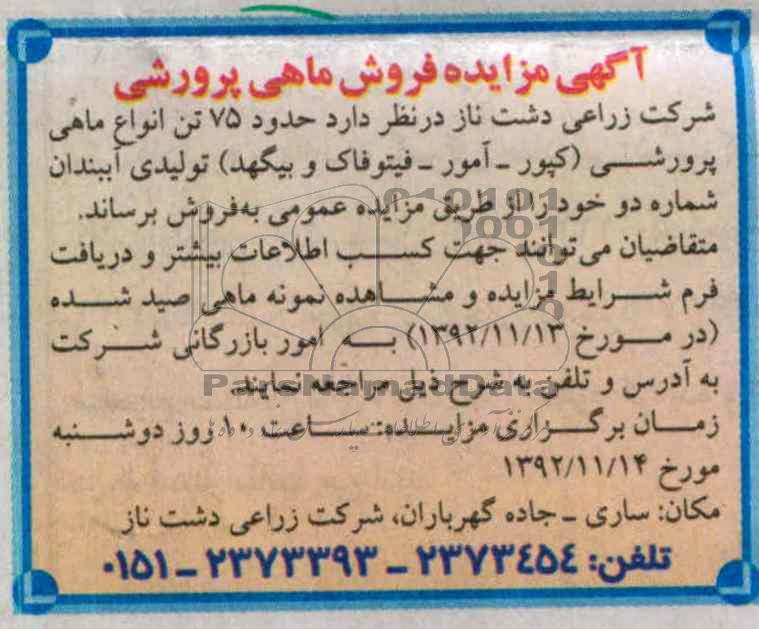 آگهی مزایده فروش ماهی پرورشی
شرکت زراعی دشت ناز درنظر دارد حدود ۷۵ تن انواع ماهی
پرورشی (کپور ـ آمور ـ فیتوفاک و بیگهد) تولیدی آببندان
شماره دو خود را از طریق مزایده عمومی به‌فروش برساند.
متقاضیان می‌توانند جهت کسب اطلاعات بیشتر و دریافت
فرم شرایط مزایده و مشاهده نمونه ماهی صید شده
(در مورخ ۱۳۹۲/۱۱/۱۳) به امور بازرگانی شرکت
به آدرس و تلفن به شرح ذیل مراجعه نمایند.
ParsNamadData
زمان برگزاری مزایده: ساعت ۱۰ روز دوشنبه
مورخ ۱۳۹۲/۱۱/۱۴
مکان: ساری ـ جاده گهرباران، شرکت زراعی دشت ناز
تلفن: ۲۳۷۳۴۵۴ ـ ۲۳۷۳۳۹۳ ـ ۰۱۵۱